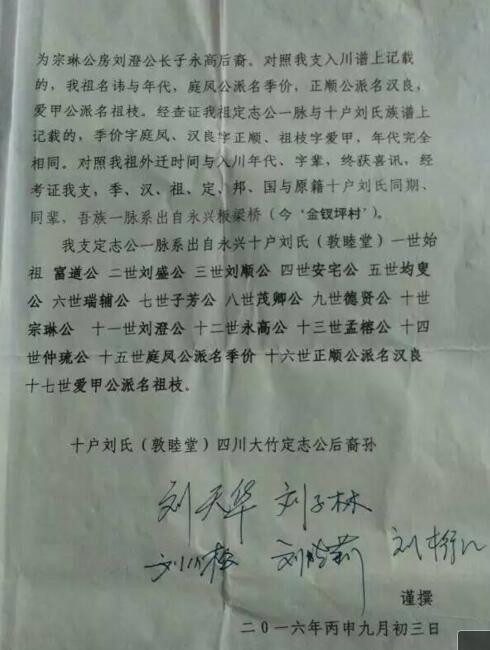 为宗琳公房刘澄公长子永高后裔。对照我支入川谱上记载
的，我祖名讳与年代，庭凤公派名季价，正顺公派名汉良，
爱甲公派名祖枝。经查证我祖定志公一脉与十户刘氏族谱上
记载的，季价字庭凤、汉良字正顺、祖枝字爱甲，年代完全
相同。对照我祖外迁时间与入川年代、字辈，终获喜讯，经
考证我支，季、汉、祖、定、邦、国与原籍十户刘氏同期、
同辈，吾族一脉系出自永兴板梁桥（今‘金钗坪村’）。
我支定志公一脉系出自永兴十户刘氏（敦睦堂）一世始
祖 富道公 二世刘盛公 三世刘顺公 四世安宅公 五世均叟
公 六世瑞辅公 七世子芳公 八世茂卿公 九世德贤公 十世
宗琳公 十一世刘澄公 十二世永高公 十三世孟榕公 十四
世仲琉公 十五世庭凤公派名季价 十六世正顺公派名汉良
十七世爱甲公派名祖枝。
十户刘氏（敦睦堂）四川大竹定志公后裔孙
刘天华 刘子林
刘 刘
谨撰
二0一六年丙申九月初三日